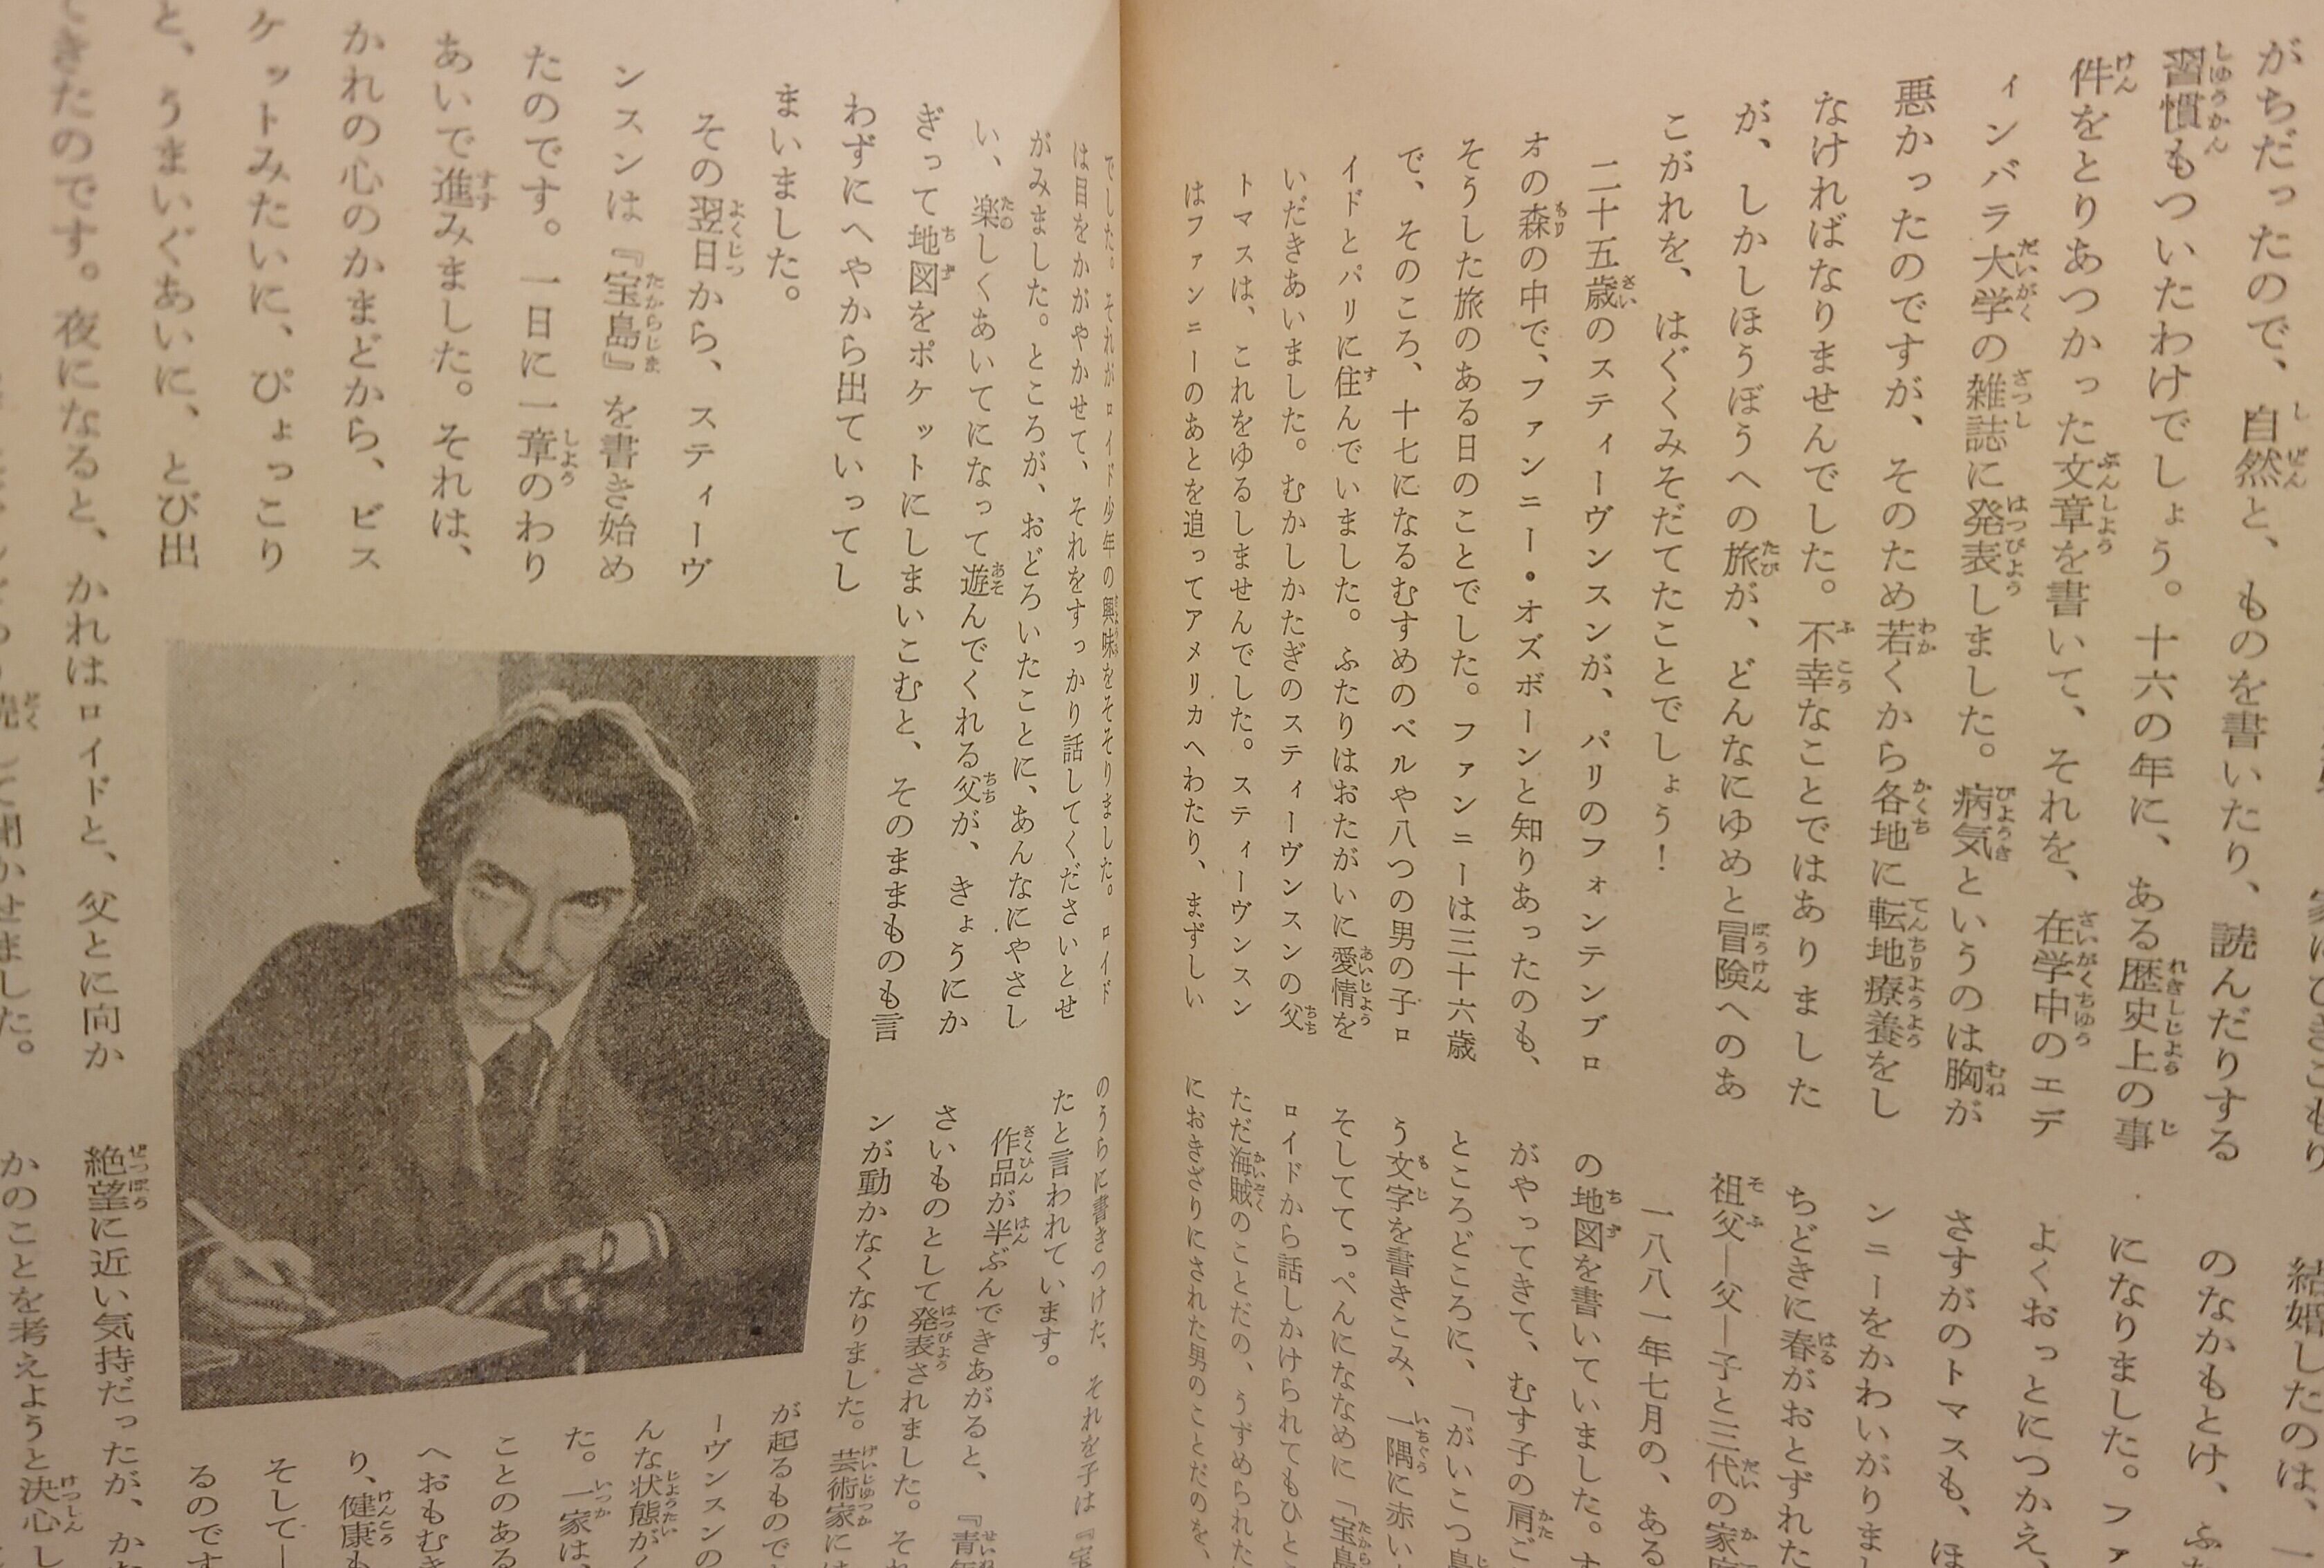 家にひきこもり
がちだったので、自然と、ものを書いたり、読んだりする
習慣もついたわけでしょう。十六の年に、ある歴史上の事
件をとりあつかった文章を書いて、それを、在学中のエデ
ィンバラ大学の雑誌に発表しました。病気というのは胸が
悪かったのですが、そのため若くから各地に転地療養をし
なければなりませんでした。不幸なことではありました
が、しかしほうぼうへの旅が、どんなにゆめと冒険へのあ
こがれを、はぐくみそだてたことでしょう！
二十五歳のスティーヴンスンが、パリのフォンテンブロ
オの森の中で、ファンニー・オズボーンと知りあったのも、
そうした旅のある日のことでした。ファンニーは三十六歳
で、そのころ、十七になるむすめのベルや八つの男の子ロ
イドとパリに住んでいました。ふたりはおたがいに愛情を
いだきあいました。むかしかたぎのスティーヴンスンの父
トマスは、これをゆるしませんでした。スティーヴンスン
はファンニーのあとを追ってアメリカへわたり、まずしい
結婚したのは、
のなかもとけ、ふ
になりました。ファ
よくおっとにつかえ、
さすがのトマスも、ほ
ンニーをかわいがりま
ちどきに春がおとずれた
祖父―父―子と三代の家
一八八一年七月の、ある
の地図を書いていました。
がやってきて、むす子の肩ご
ところどころに、「がいこつ島
う文字を書きこみ、一隅に赤い
そしててっぺんにななめに「宝島
ロイドから話しかけられてもひと
ただ海賊のことだの、うずめられた
におきざりにされた男のことだのを、
でした。それがロイド少年の興味をそそりました。ロイド
は目をかがやかせて、それをすっかり話してくださいとせ
がみました。ところが、おどろいたことに、あんなにやさし
い、楽しくあいてになって遊んでくれる父が、きょうにか
ぎって地図をポケットにしまいこむと、そのままものも言
わずにへやから出ていってし
まいました。
その翌日から、スティーヴ
ンスンは『宝島』を書き始め
たのです。一日に一章のわり
あいで進みました。それは、
かれの心のかまどから、ビス
ケットみたいに、ぴょっこり
と、うまいぐあいに、とび出
てきたのです。夜になると、かれはロイドと、父とに向か
して聞かせました。
のうらに書きつけた、それを子は『宝
たと言われています。
作品が半ぶんできあがると、『青年
さいものとして発表されました。それ
ンが動かなくなりました。芸術家には
が起るもので
ーヴンスンの
んな状態が
た。一家は、
ことのある
へおもむき
り、健康も
そして
るのです
絶望に近い気持だったが、か
かのことを考えようと決心し